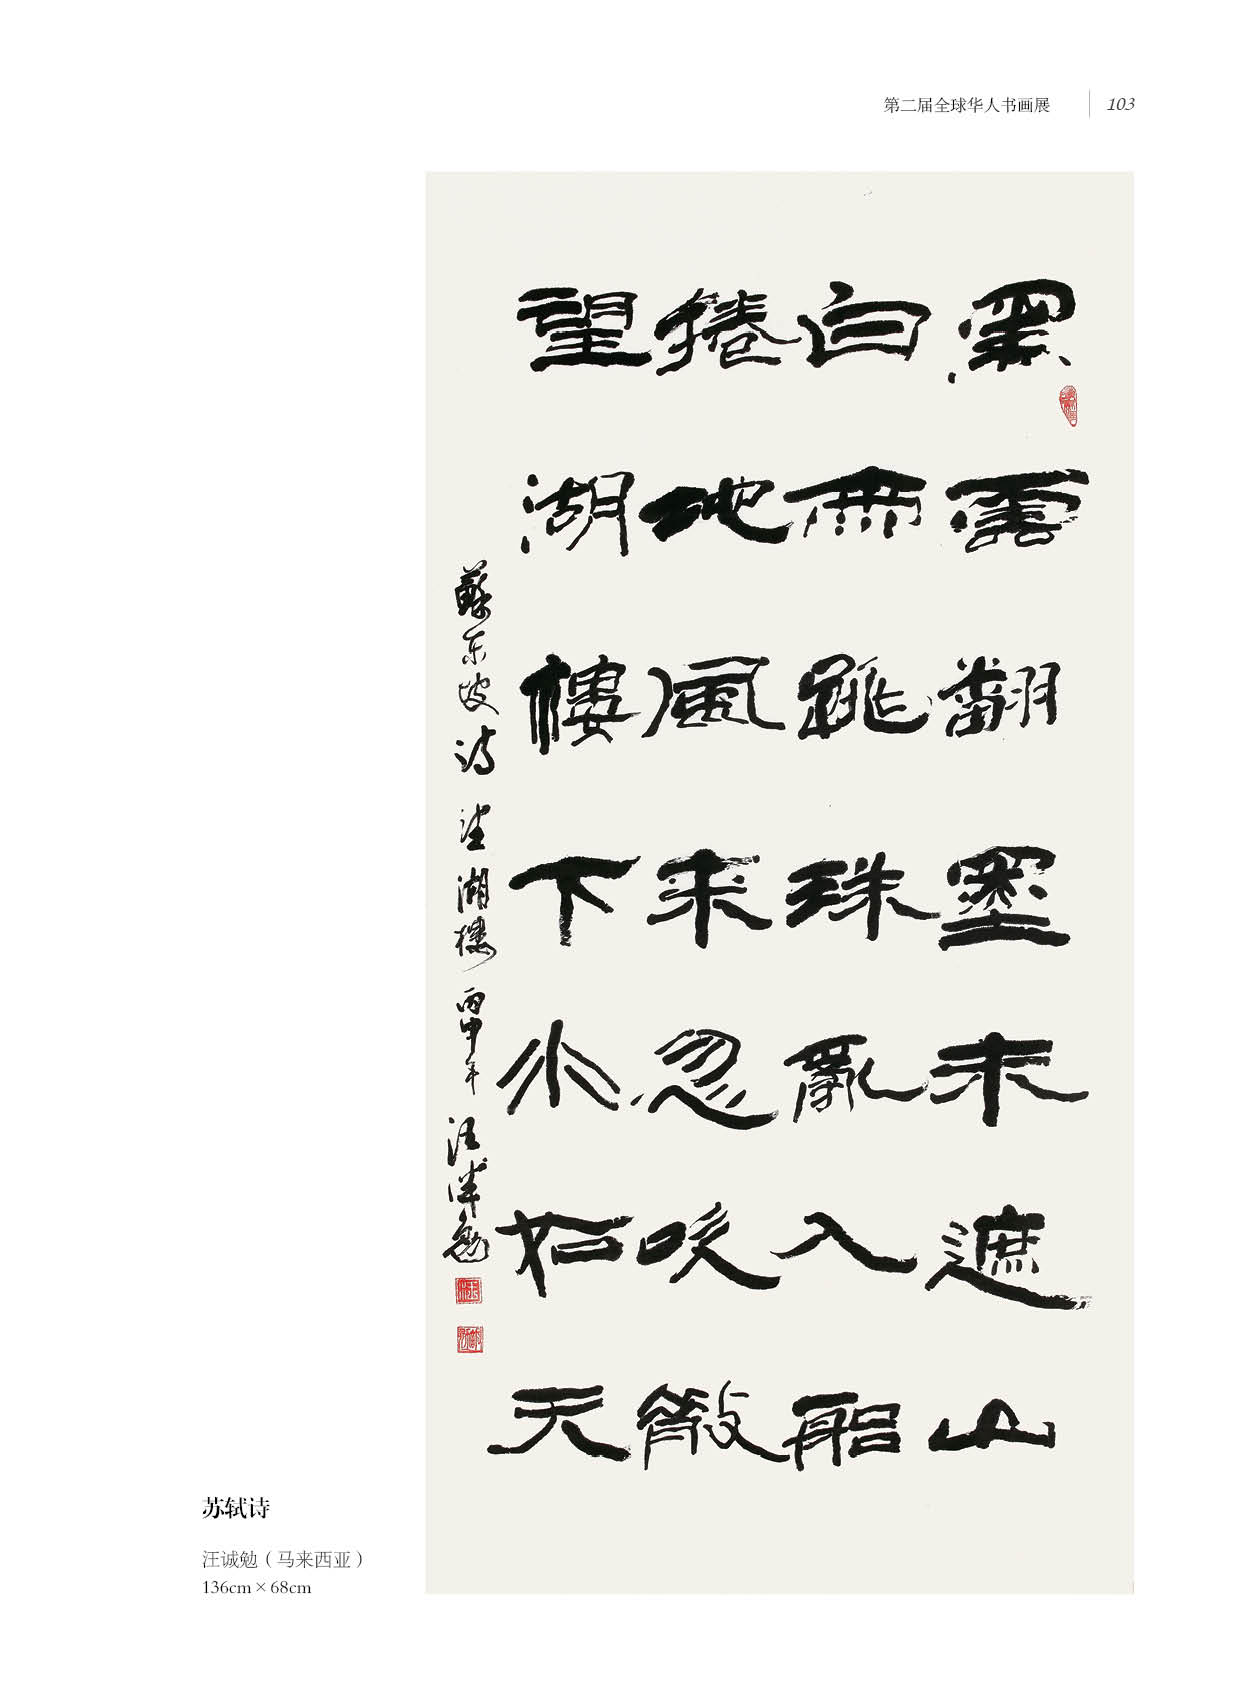 第二届全球华人书画展 103
黑雲翻墨未遮山
白雨跳珠亂入船
捲地風來忽吹散
望湖樓下水如天
蘇东坡诗 望湖樓 丙申年 汪诚勉
苏轼诗
汪诚勉（马来西亚）
136cm×68cm